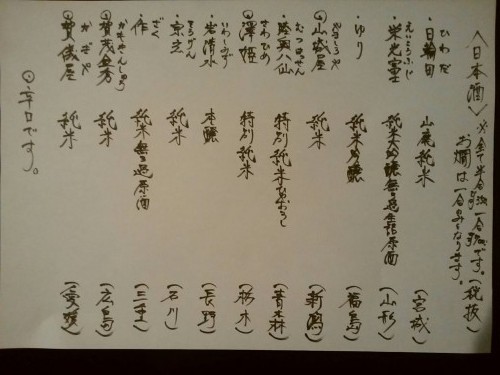 〈日本酒〉 ※全て半合 一合 です。(税抜)
お燗は一合のみとなります。
ひわた
・日輪田 山廃純米 (宮城)
えいこうふじ
・栄光冨士 純米大吟醸無濾過生詰原酒 (山形)
・ゆり 純米吟醸 (福島)
やましろや
◎山城屋 純米 (新潟)
むつはっせん
・陸奥八仙 特別純米ひやおろし (青森)
さわひめ
◎澤姫 特別純米 (栃木)
いわしみず
・岩清水 本醸 (長野)
そうげん
・宗玄 純米 (石川)
ざく
・作 純米無濾過原酒 (三重)
かもきんしゅう
◎賀茂金秀 純米 (広島)
かぎや
◎賀儀屋 純米 (愛媛)
◎辛口です。